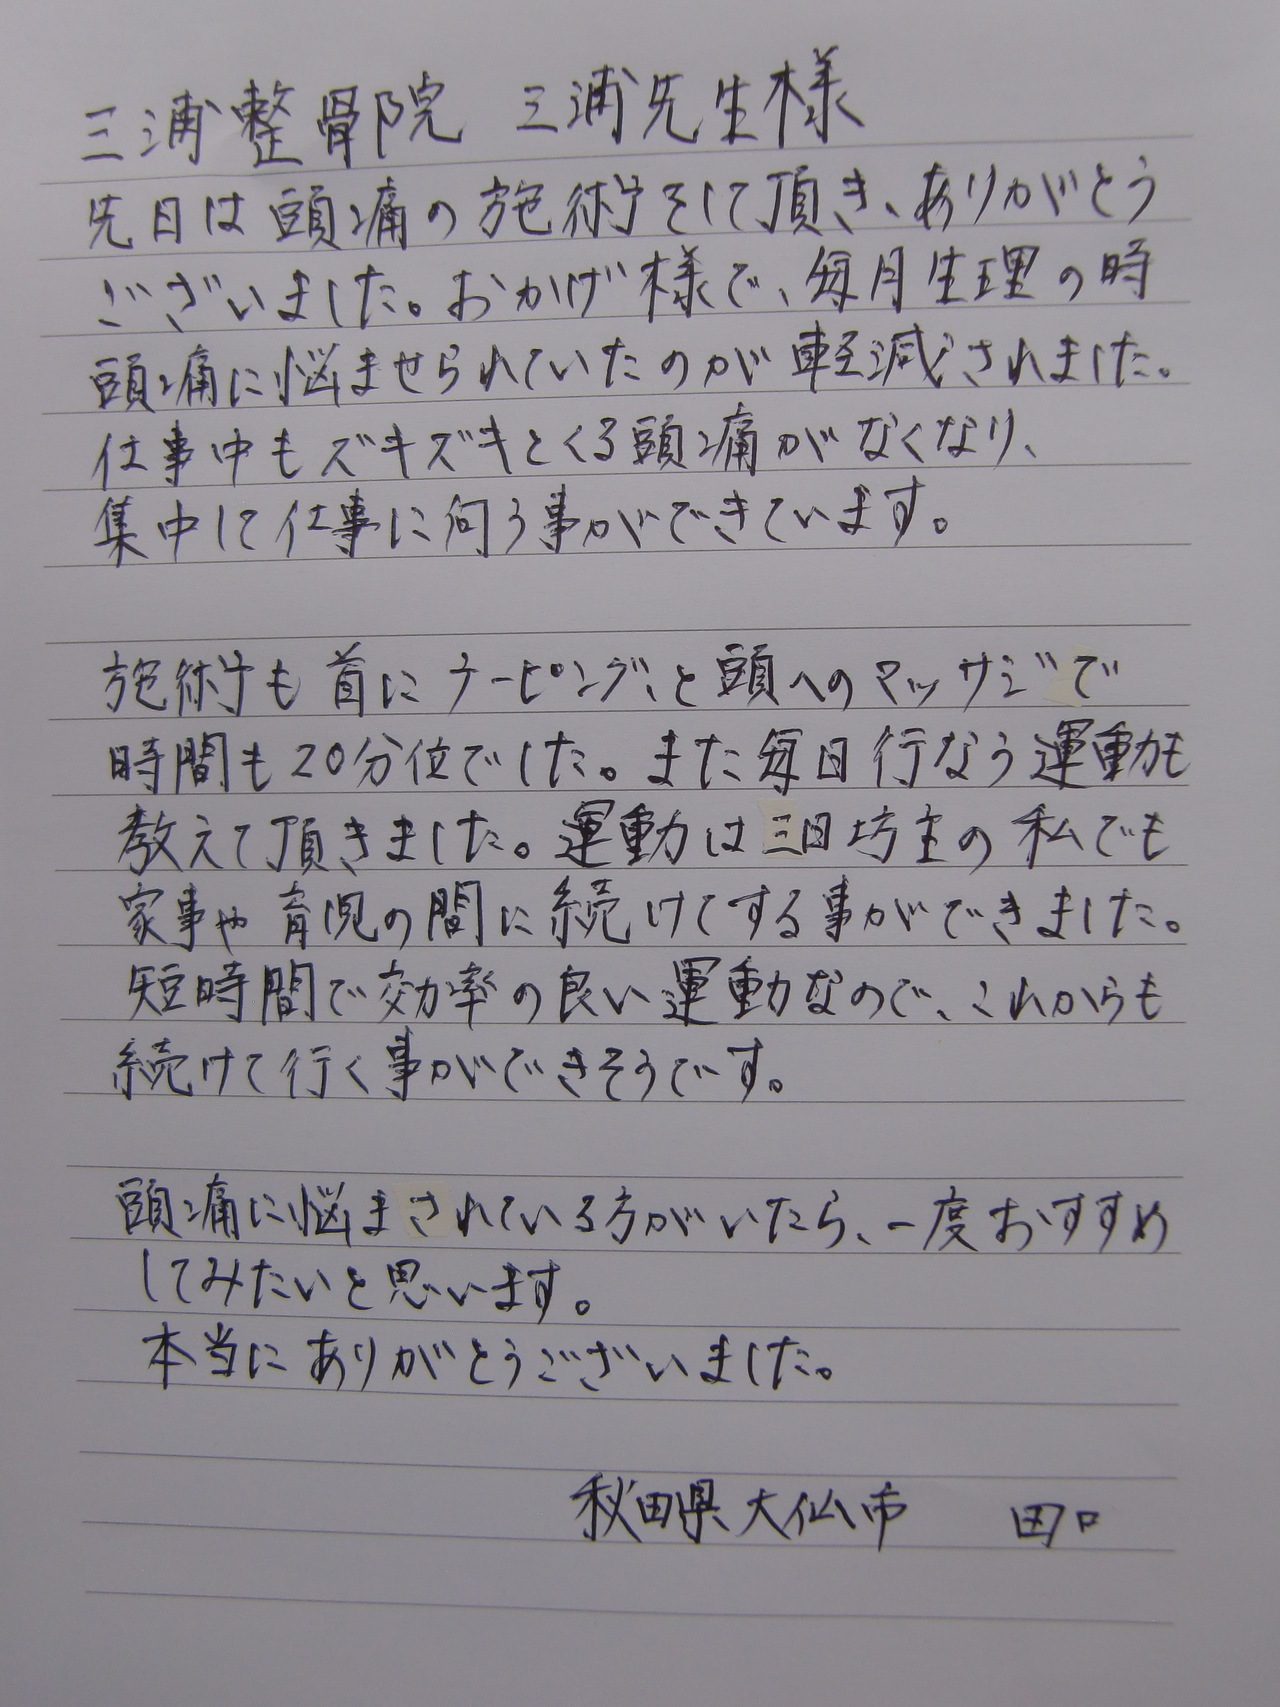 三浦整骨院 三浦先生様
先日は頭痛の施術をして頂き、ありがとう
ございました。おかげ様で、毎月生理の時
頭痛に悩ませられていたのが軽減されました。
仕事中もズキズキとくる頭痛がなくなり、
集中して仕事に向う事ができています。
施術も首にテーピング、と頭へのマッサジで
時間も20分位でした。また毎日行なう運動も
教えて頂きました。運動は三日坊主の私でも
家事や育児の間に続けてする事ができました。
短時間で効率の良い運動なので、これからも
続けて行く事ができそうです。
頭痛に悩まされている方がいたら、一度おすすめ
してみたいと思います。
本当にありがとうございました。
秋田県大仙市 田口